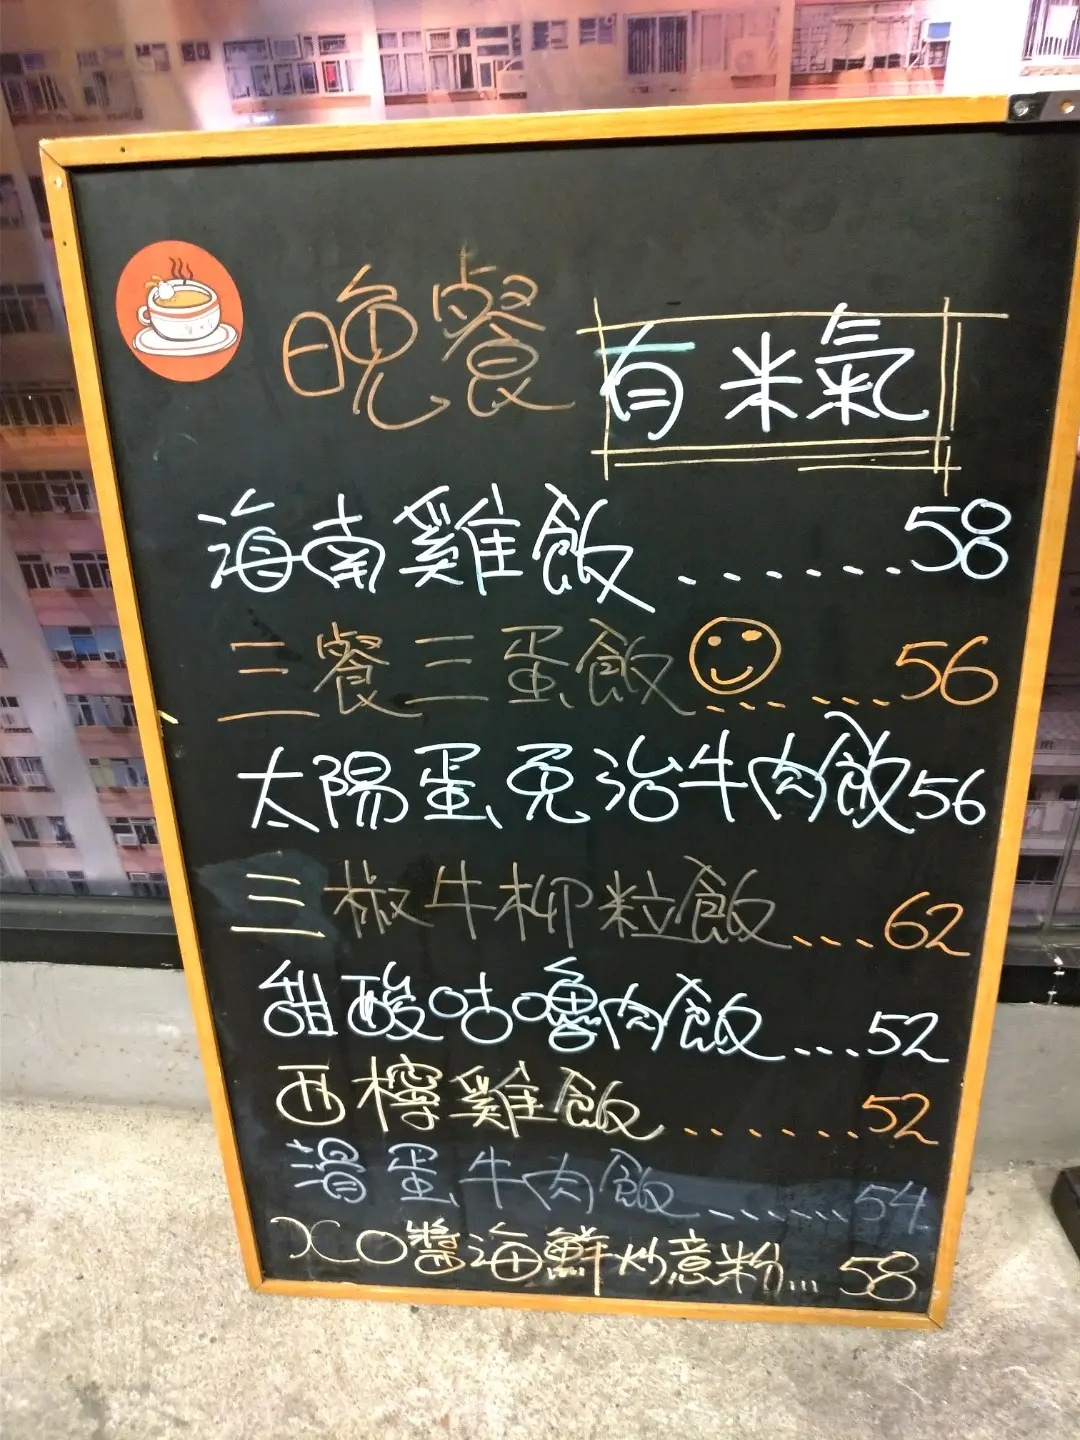 晚餐 有米氣
海南雞飯.......58
三餐三蛋飯......56
太陽蛋免治牛肉飯56
三椒牛柳粒飯....62
甜酸咕嚕肉飯....52
西檸雞飯.......52
滑蛋牛肉飯.......54
XO醬海鮮炒意粉...58